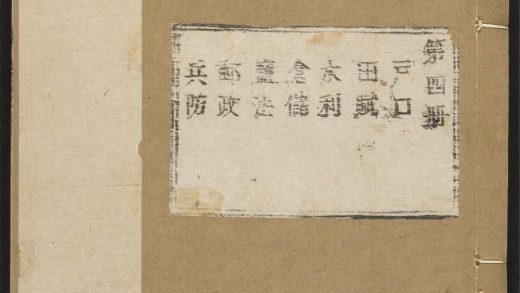 第四册
戸口
田賦
水利
倉儲
鹽法
郵政
兵防